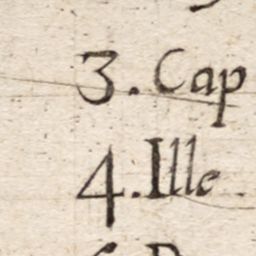 3. Cap
4. Ille